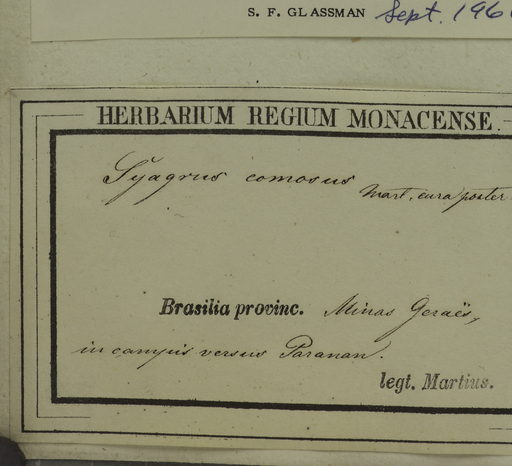 S. F. GLASSMAN Sept. 196
HERBARIUM REGIUM MONACENSE.
Syagrus comosus
Mart. cura poster
Brasilia provinc. Minas Geraës,
in campis versus Paranan.
legt. Martius.